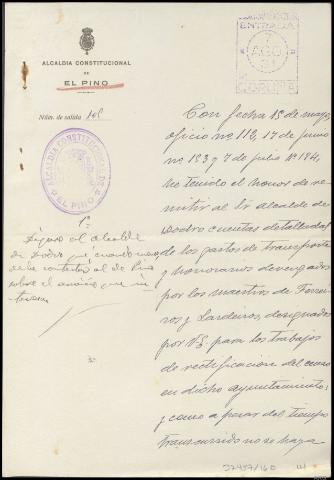 ALCALDIA CONSTITUCIONAL
DE
EL PINO
Núm. de salida 201
ALCALDIA CONSTITUCIONAL DE
EL PINO
ENTRADA
7
AGO.
31
CORUÑA
Con fecha 15 de mayo,
oficio nº 112, 17 de junio
nº 153 y 7 de julio nº 184,
he tenido el honor de re-
mitir al Sr Alcalde de
Dodro cuentas detalladas
de los gastos de transporte
y honorarios devengados
por los maestros de Ferrei-
ros y Lardeiros, designados
por V.S. para los trabajos
de rectificación del censo
en dicho ayuntamiento;
y como a pesar del tiempo
transcurrido no se haya
1º
Dígase al alcalde
de Dodro que cuando
debe contestar al de Pino
sobre el
37457/160